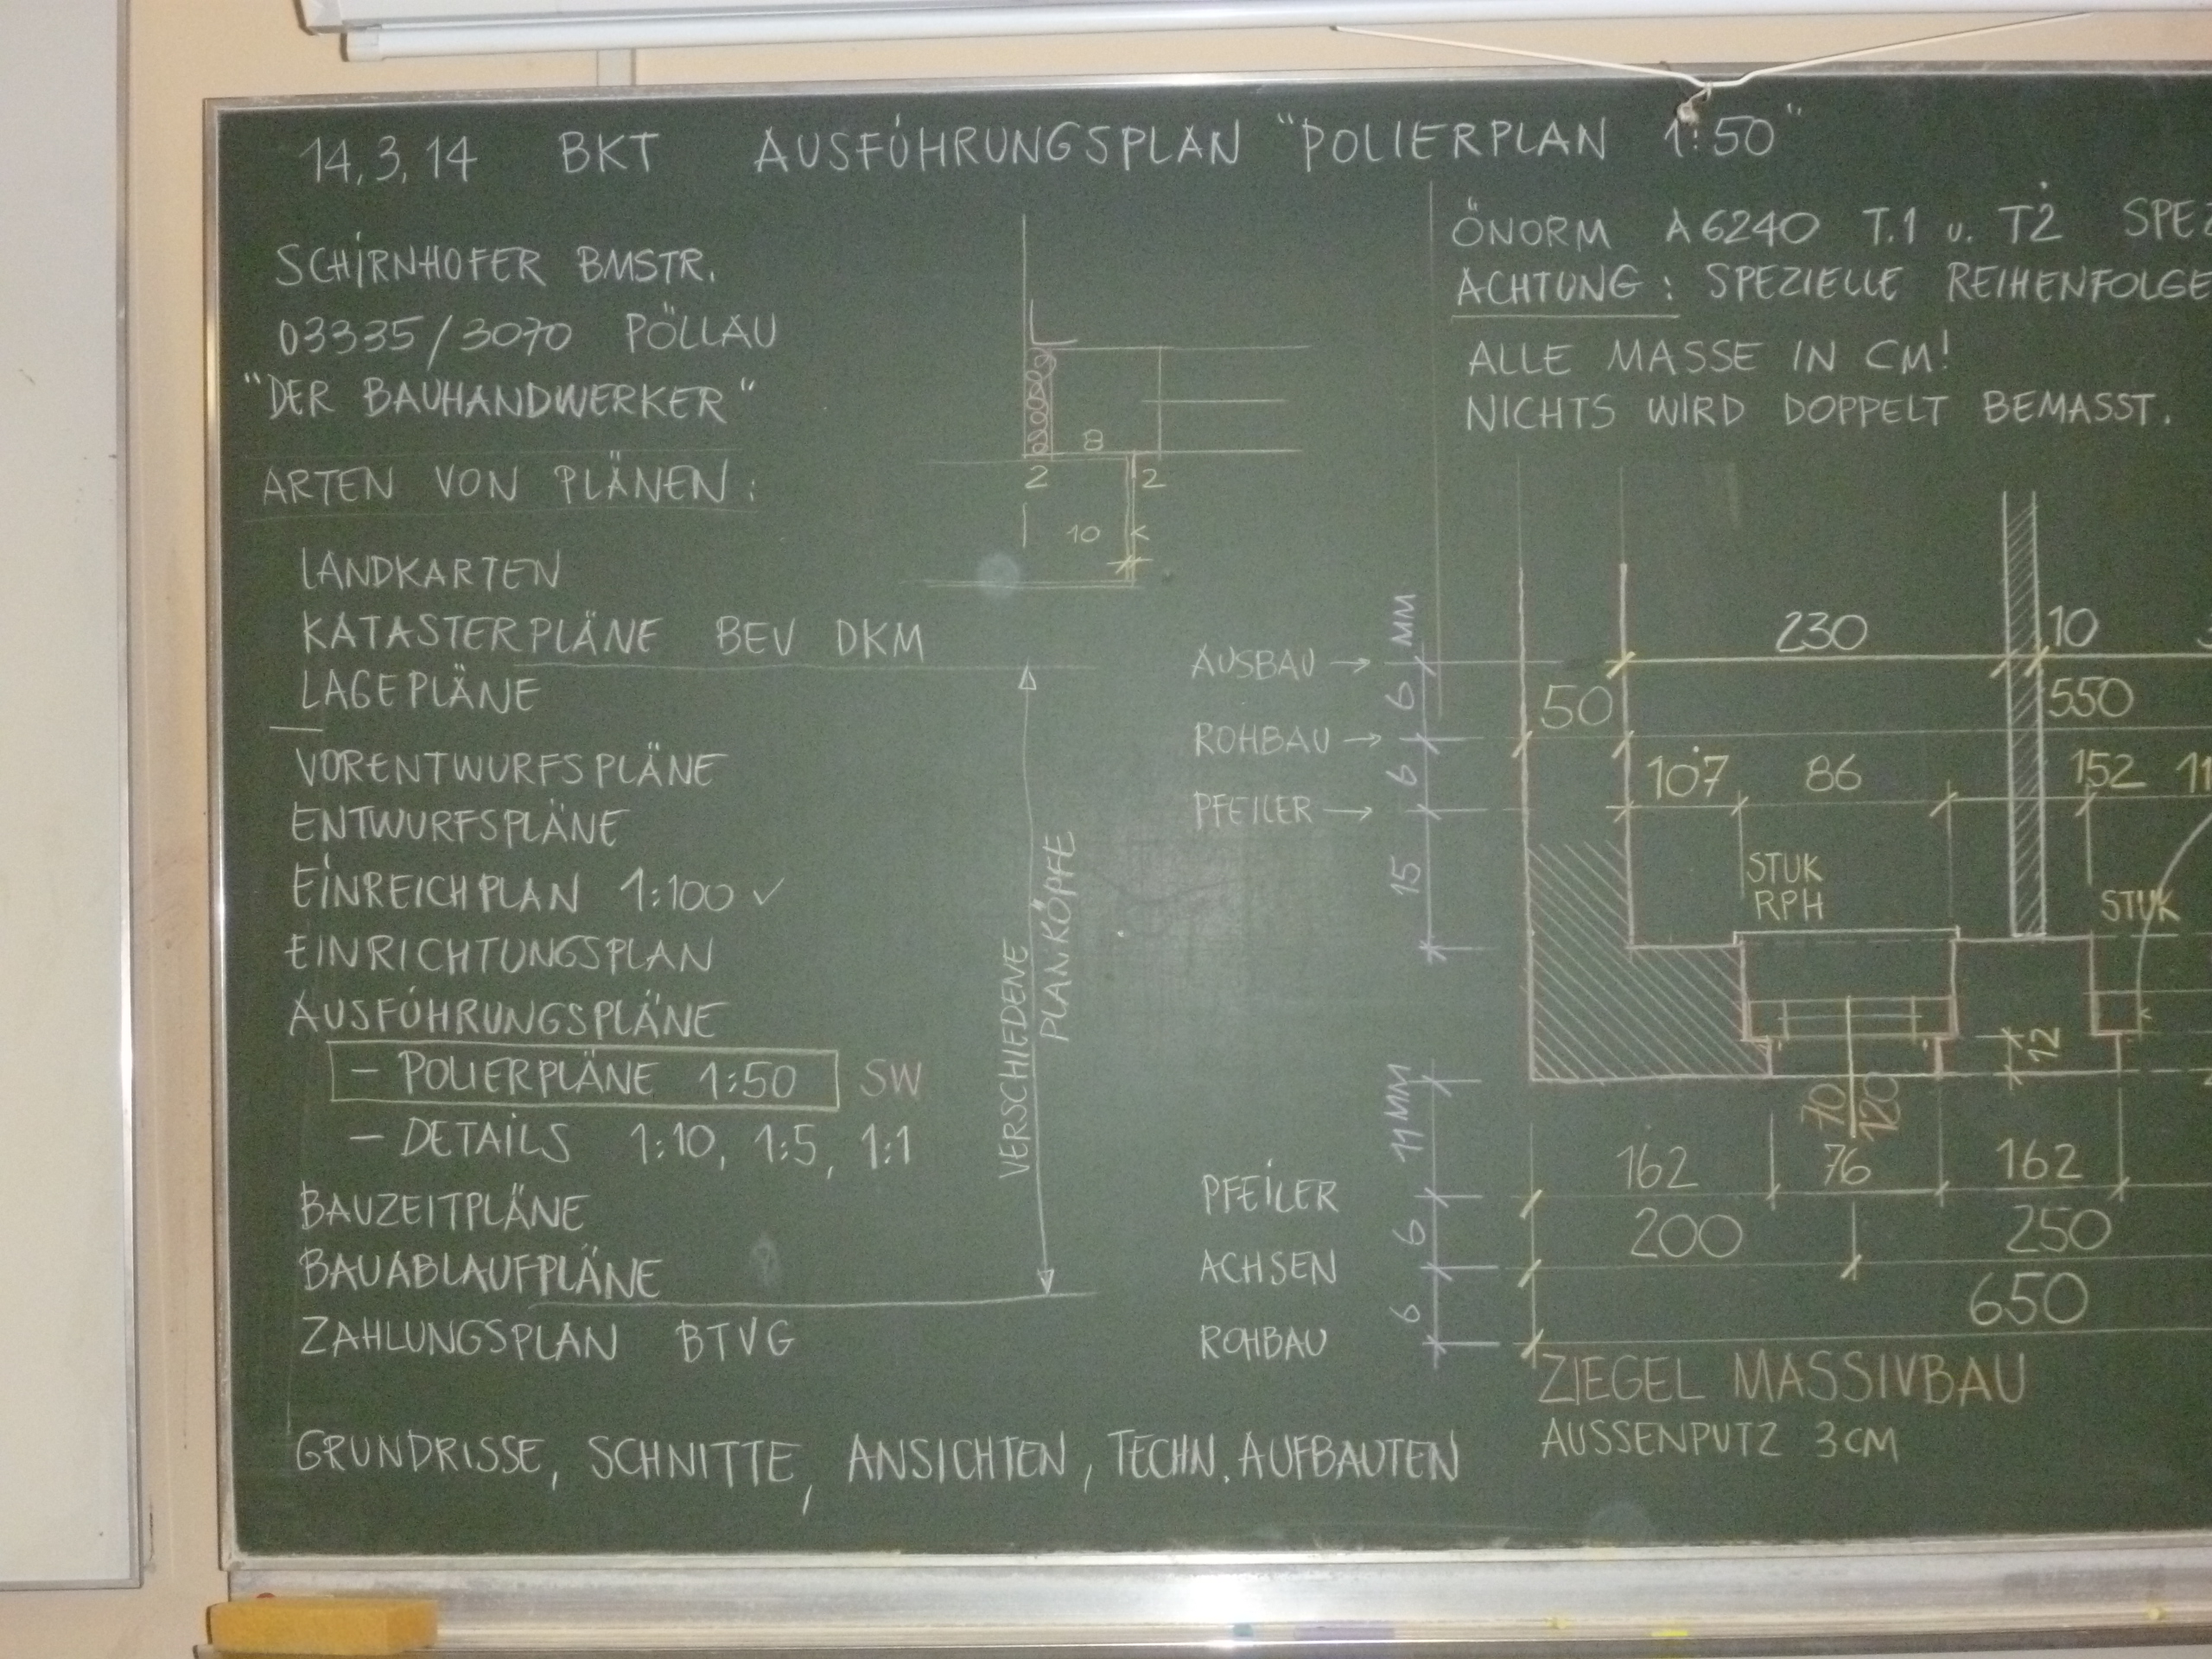 14,3,14 BKT AUSFÜHRUNGSPLAN "POLIERPLAN 1:50"
SCHIRNHOFER BMSTR.
03335/3070 PÖLLAU
"DER BAUHANDWERKER"
ARTEN VON PLÄNEN:
LANDKARTEN
KATASTERPLÄNE BEV DKM
LAGEPLÄNE
VORENTWURFSPLÄNE
ENTWURFSPLÄNE
EINREICHPLAN 1:100 ✓
EINRICHTUNGSPLAN
AUSFÜHRUNGSPLÄNE
– POLIERPLÄNE 1:50 SW
– DETAILS 1:10, 1:5, 1:1
BAUZEITPLÄNE
BAUABLAUFPLÄNE
ZAHLUNGSPLAN BTVG
GRUNDRISSE, SCHNITTE, ANSICHTEN, TECHN. AUFBAUTEN
VERSCHIEDENE
PLANKÖPFE
8
2 2
10
ÖNORM A6240 T.1 u. T2 SPEZ
ACHTUNG: SPEZIELLE REIHENFOLGE
ALLE MASSE IN CM!
NICHTS WIRD DOPPELT BEMASST.
AUSBAU →
ROHBAU →
PFEILER →
MM
6
6
15
230 10
50 550
107 86 152 11
STUK
RPH
STUK
12
70
120
11MM
6
6
PFEILER
ACHSEN
ROHBAU
162 76 162
200 250
650
ZIEGEL MASSIVBAU
AUSSENPUTZ 3CM